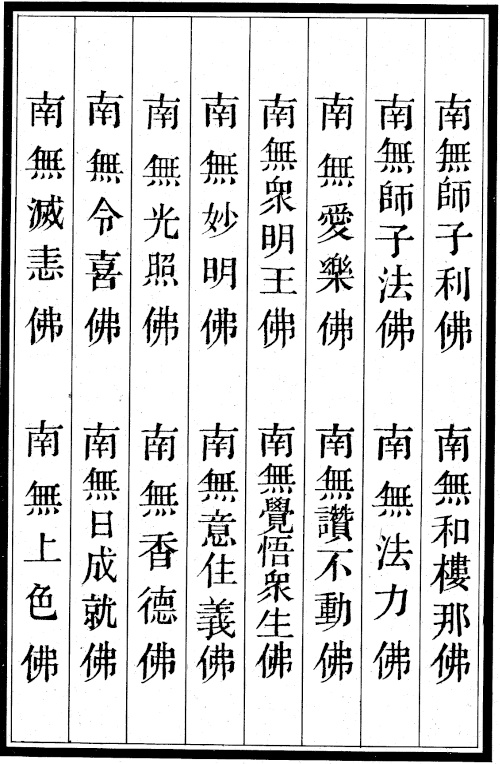 南無師子利佛 南無和樓那佛
南無師子法佛 南無法力佛
南無愛樂佛 南無讚不動佛
南無衆明王佛 南無覺悟衆生佛
南無妙明佛 南無意住義佛
南無光照佛 南無香德佛
南無令喜佛 南無日成就佛
南無滅恚佛 南無上色佛